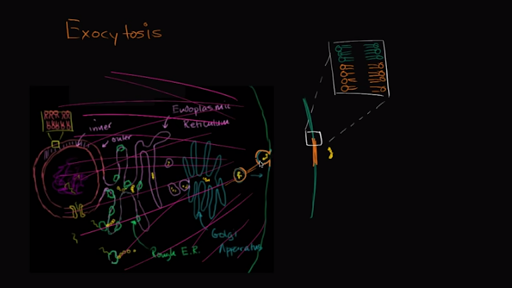 Exocytosis
Endoplasmic
Reticulum
inner
outer
Golgi
Rough E.R.
Apparatus